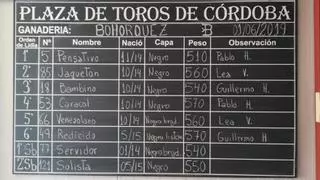 PLAZA DE TOROS DE CÓRDOBA
GANADERÍA: BOHORQUEZ B 01/06/2019
Orden de Lidia Nº Nombre Nació Capa Peso Observación
1º 5 Pensativo 11/14 Negro 510 Pablo H.
2º 85 Jaquetón 10/14 Negro 560 Lea V.
3º 18 Bambino 10/14 Negro 540 Guillermo H.
4º 53 Caracol 10/14 Negro 570 Pablo H.
5º 66 Venezolano 10/14 Negro brgd. 560 Lea V.
6º 49 Redicido 5/15 Negro listón 570 Guillermo H
1ºSb 77 Servidor 01/14 Negro brgd. 540
2ºSb 121 Solista 05/15 Negro 550